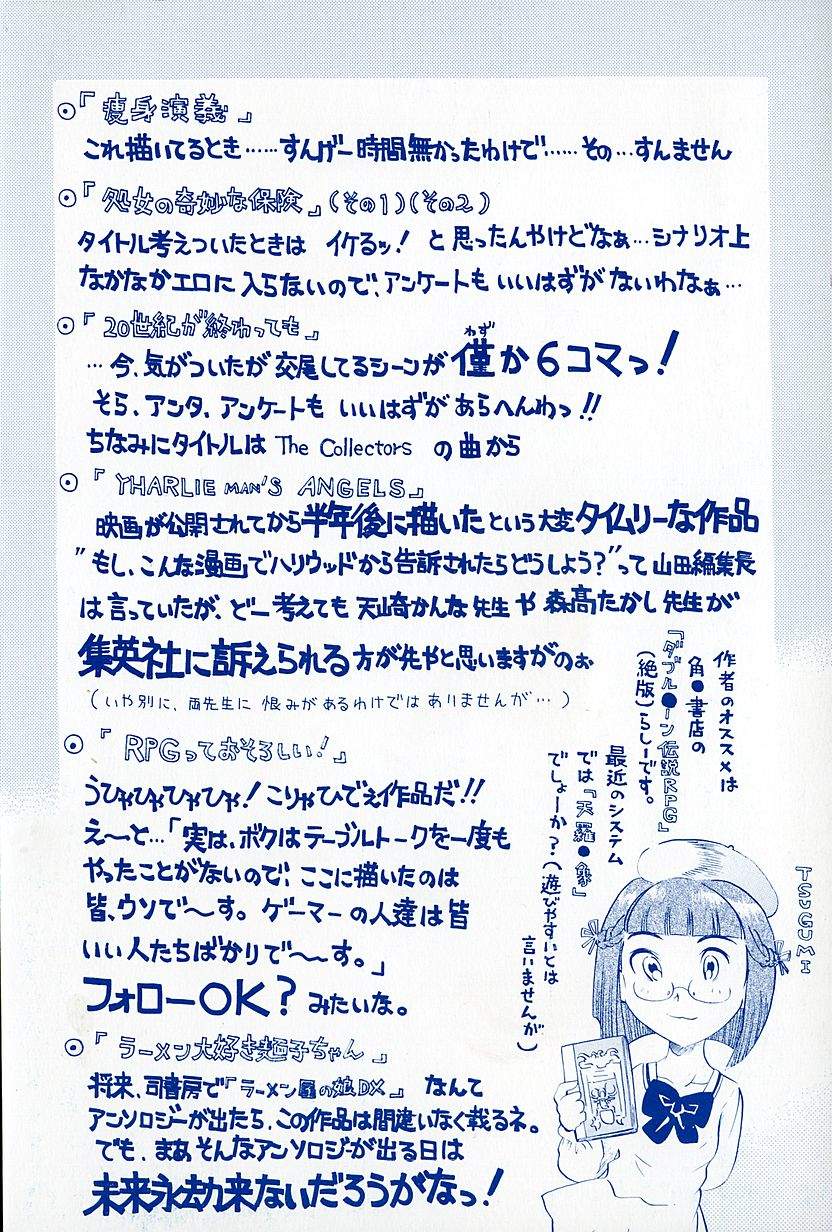 ◉『痩身演義』
これ描いてるとき……すんげー時間無かったわけで……その…すんません
◉『処女の奇妙な保険』(その1)(その2)
タイトル考えついたときは イケるッ! と思ったんやけどなぁ…シナリオ上
なかなかエロに入らないので、アンケートもいいはずがないわなぁ…
◉『20世紀が終わっても』
…今、気がついたが交尾してるシーンが僅か6コマっ!
わず
そら、アンタ、アンケートも いいはずが あらへんわっ!!
ちなみにタイトルは The Collectors の曲から
◉『YHARLIE MAN'S ANGELS』
映画が公開されてから半年後に描いたという大変タイムリーな作品
"もし、こんな漫画でハリウッドから告訴されたらどうしよう?"って山田編集長
は言っていたが、どー考えても 天崎かんな先生や 森髙たかし先生が
集英社に訴えられる方が先やと思いますがのぉ
(いや別に、両先生に 恨みがあるわけではありませんが…)
◉『RPGっておそろしい!』
うひゃひゃひゃひゃ!こりゃひでぇ作品だ!!
え〜と…「実は、ボクはテーブルトークを一度も
やったことがないので、ここに描いたのは
皆、ウソで〜す。ゲーマーの人達は皆
いい人たちばかりで〜〜す。」
フォローOK?みたいな。
作者のオススメは
角●書店の
『ダブル●ーン伝説RPG』
(絶版)らしーです。
最近のシステム
では『天羅●象』
でしょーか?(遊びやすいとは
言いませんが)
TSUGUMI
◉『ラーメン大好き麺子ちゃん』
将来、司書房で『ラーメン屋の娘DX』 なんて
アンソロジーが出たら、この作品は間違いなく載るネ。
でも、まぁそんなアンソロジーが出る日は
未来永劫来ないだろうがなっ!